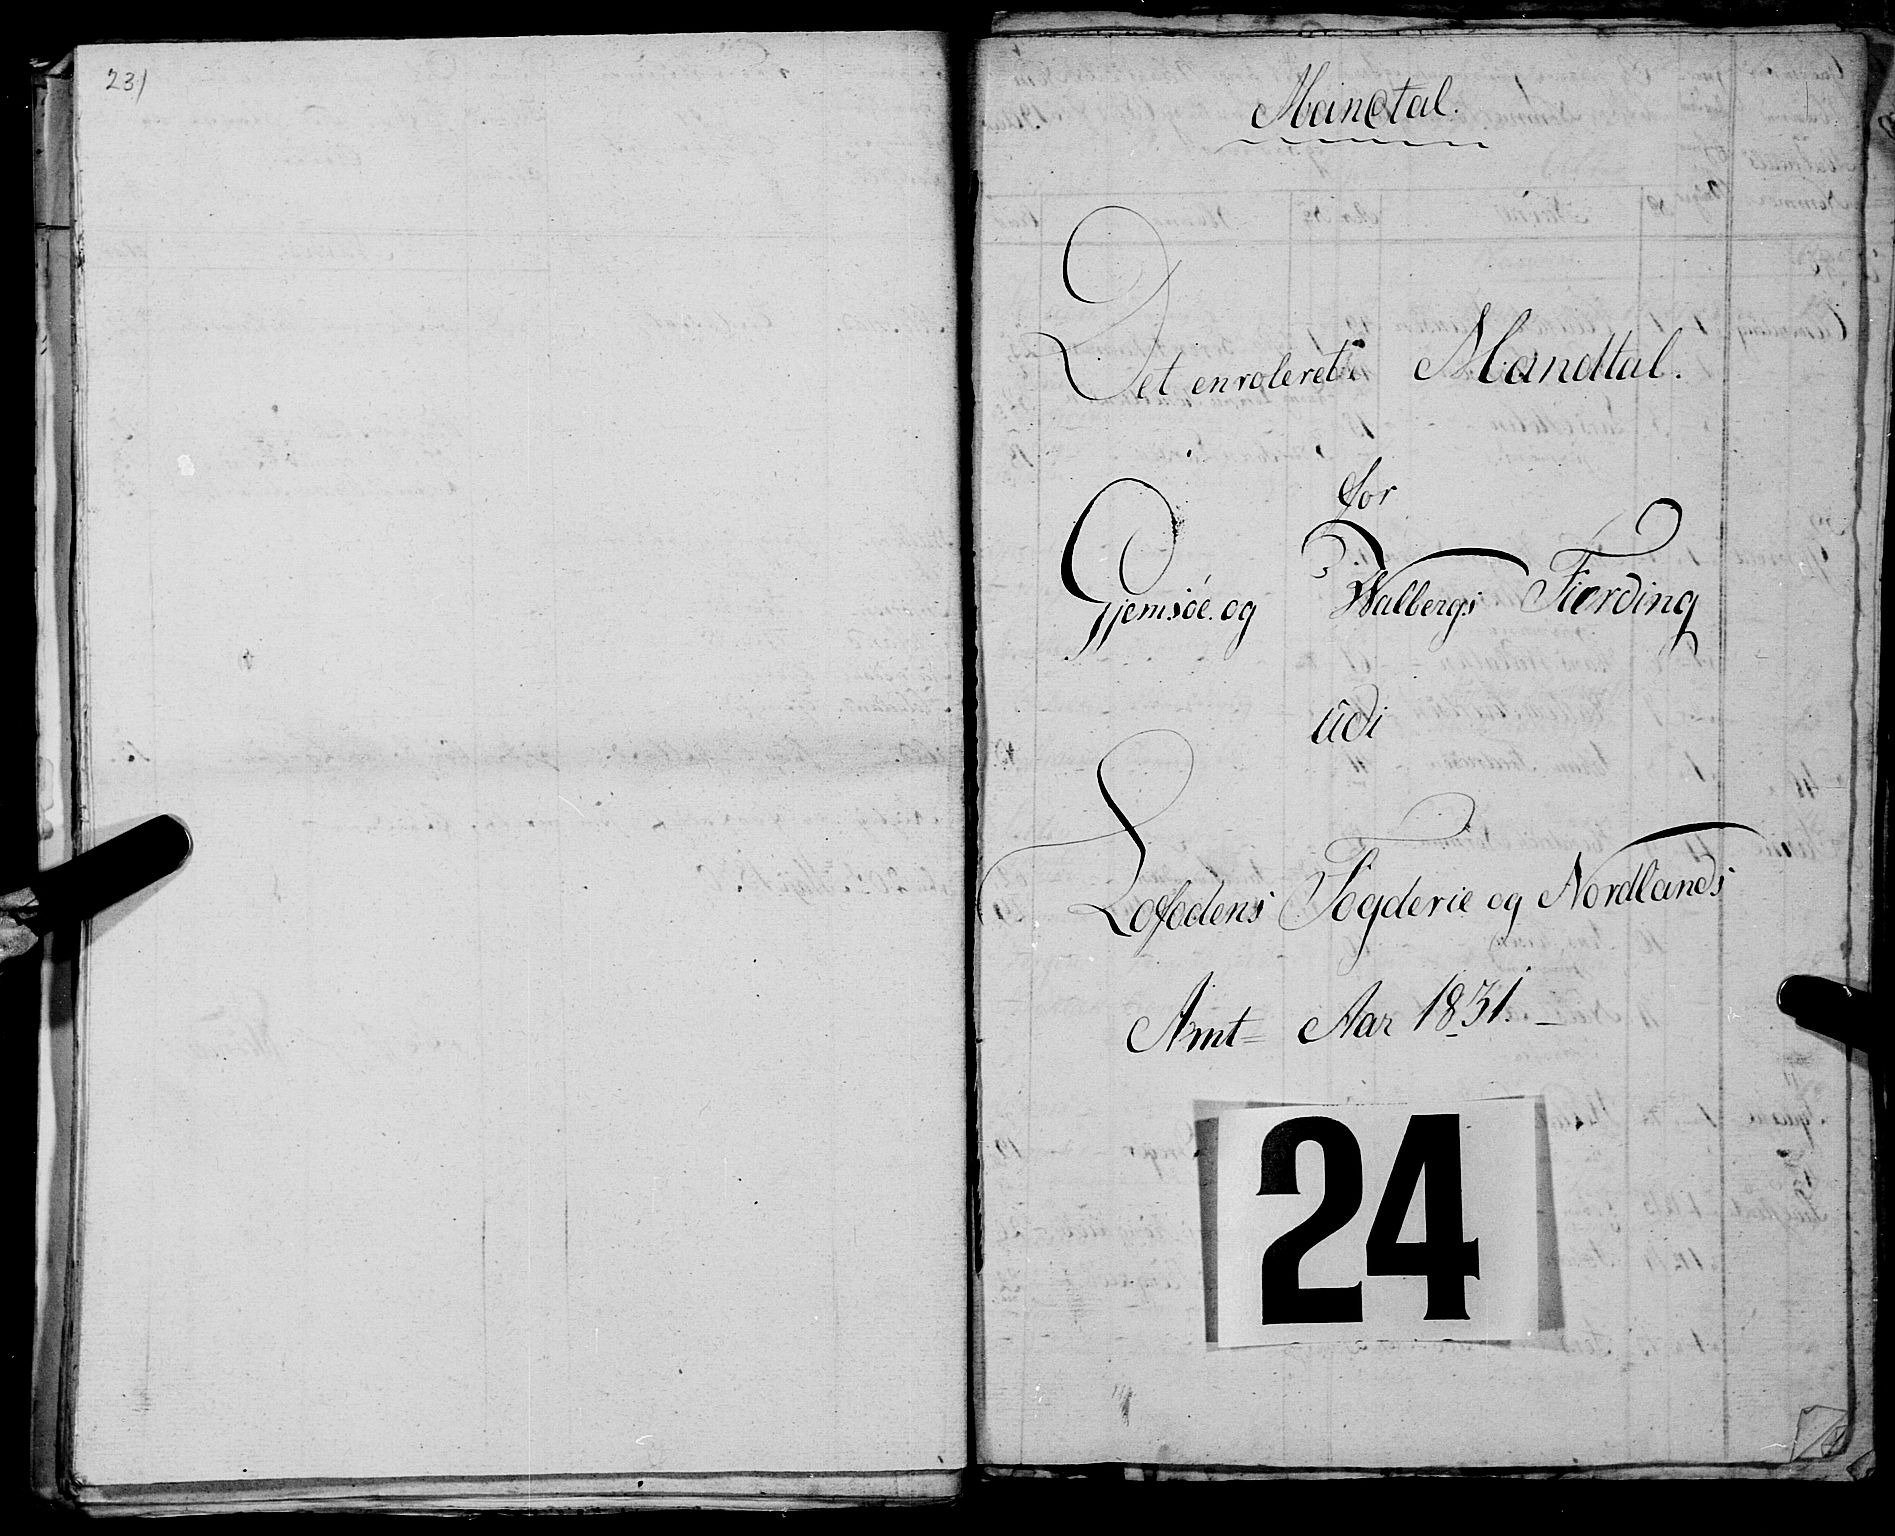 231
Mandtal.
Det enrolerede Mandtal.
for
Gjemsøe og Walbergs Fierding
udi
Lofodens Fogderie og Nordlands
Amt Aar 1831.
24